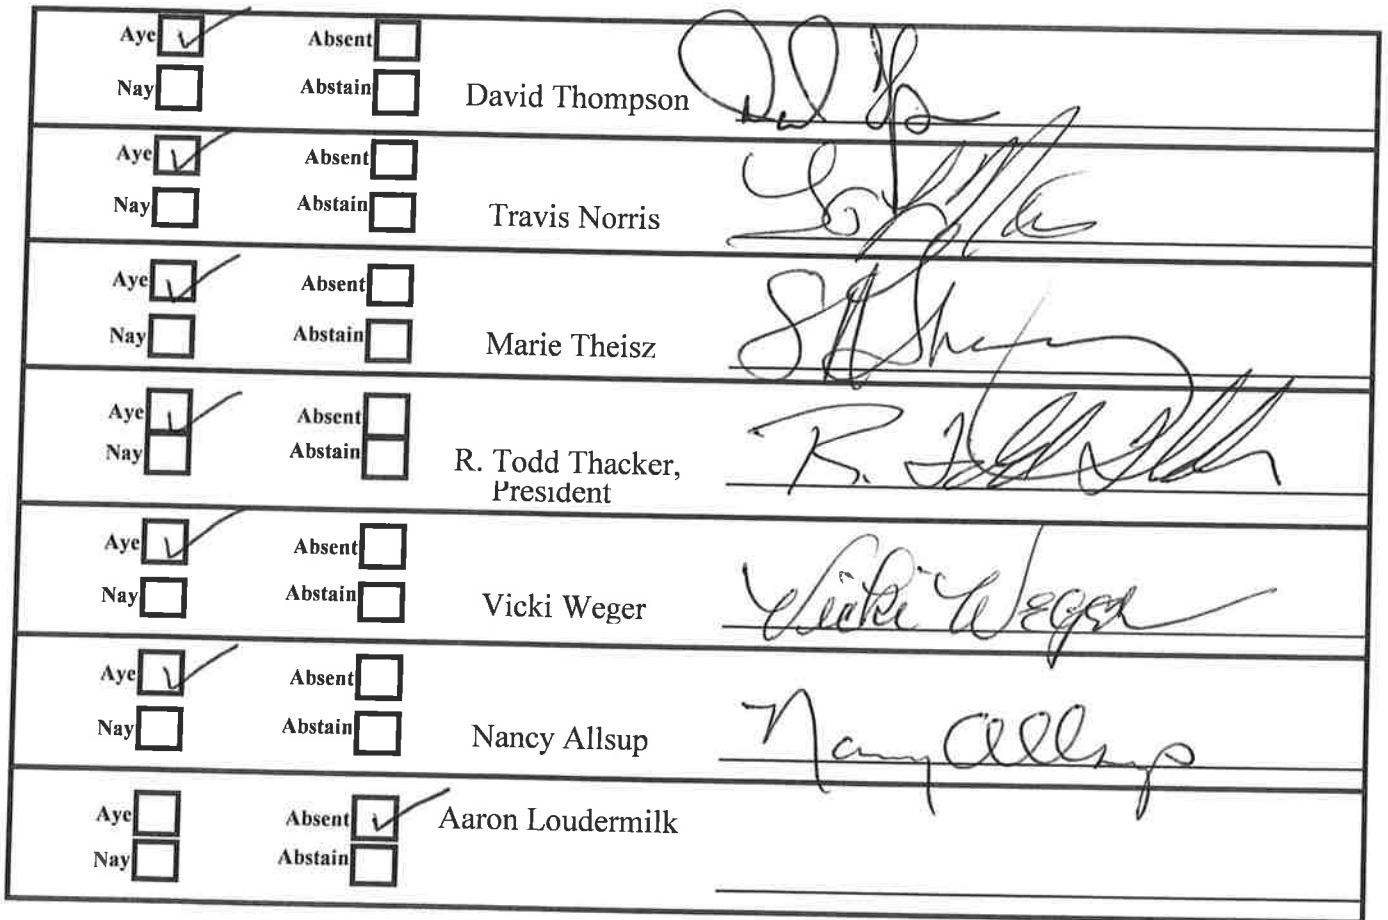 Aye Absent
Nay Abstain David Thompson
Aye Absent
Nay Abstain Travis Norris
Aye Absent
Nay Abstain Marie Theisz
Aye Absent
Nay Abstain R. Todd Thacker,
President
R. Todd Thacker
Aye Absent
Nay Abstain Vicki Weger
Vicki Weger
Aye Absent
Nay Abstain Nancy Allsup
Nancy Allsup
Aye Absent Aaron Loudermilk
Nay Abstain